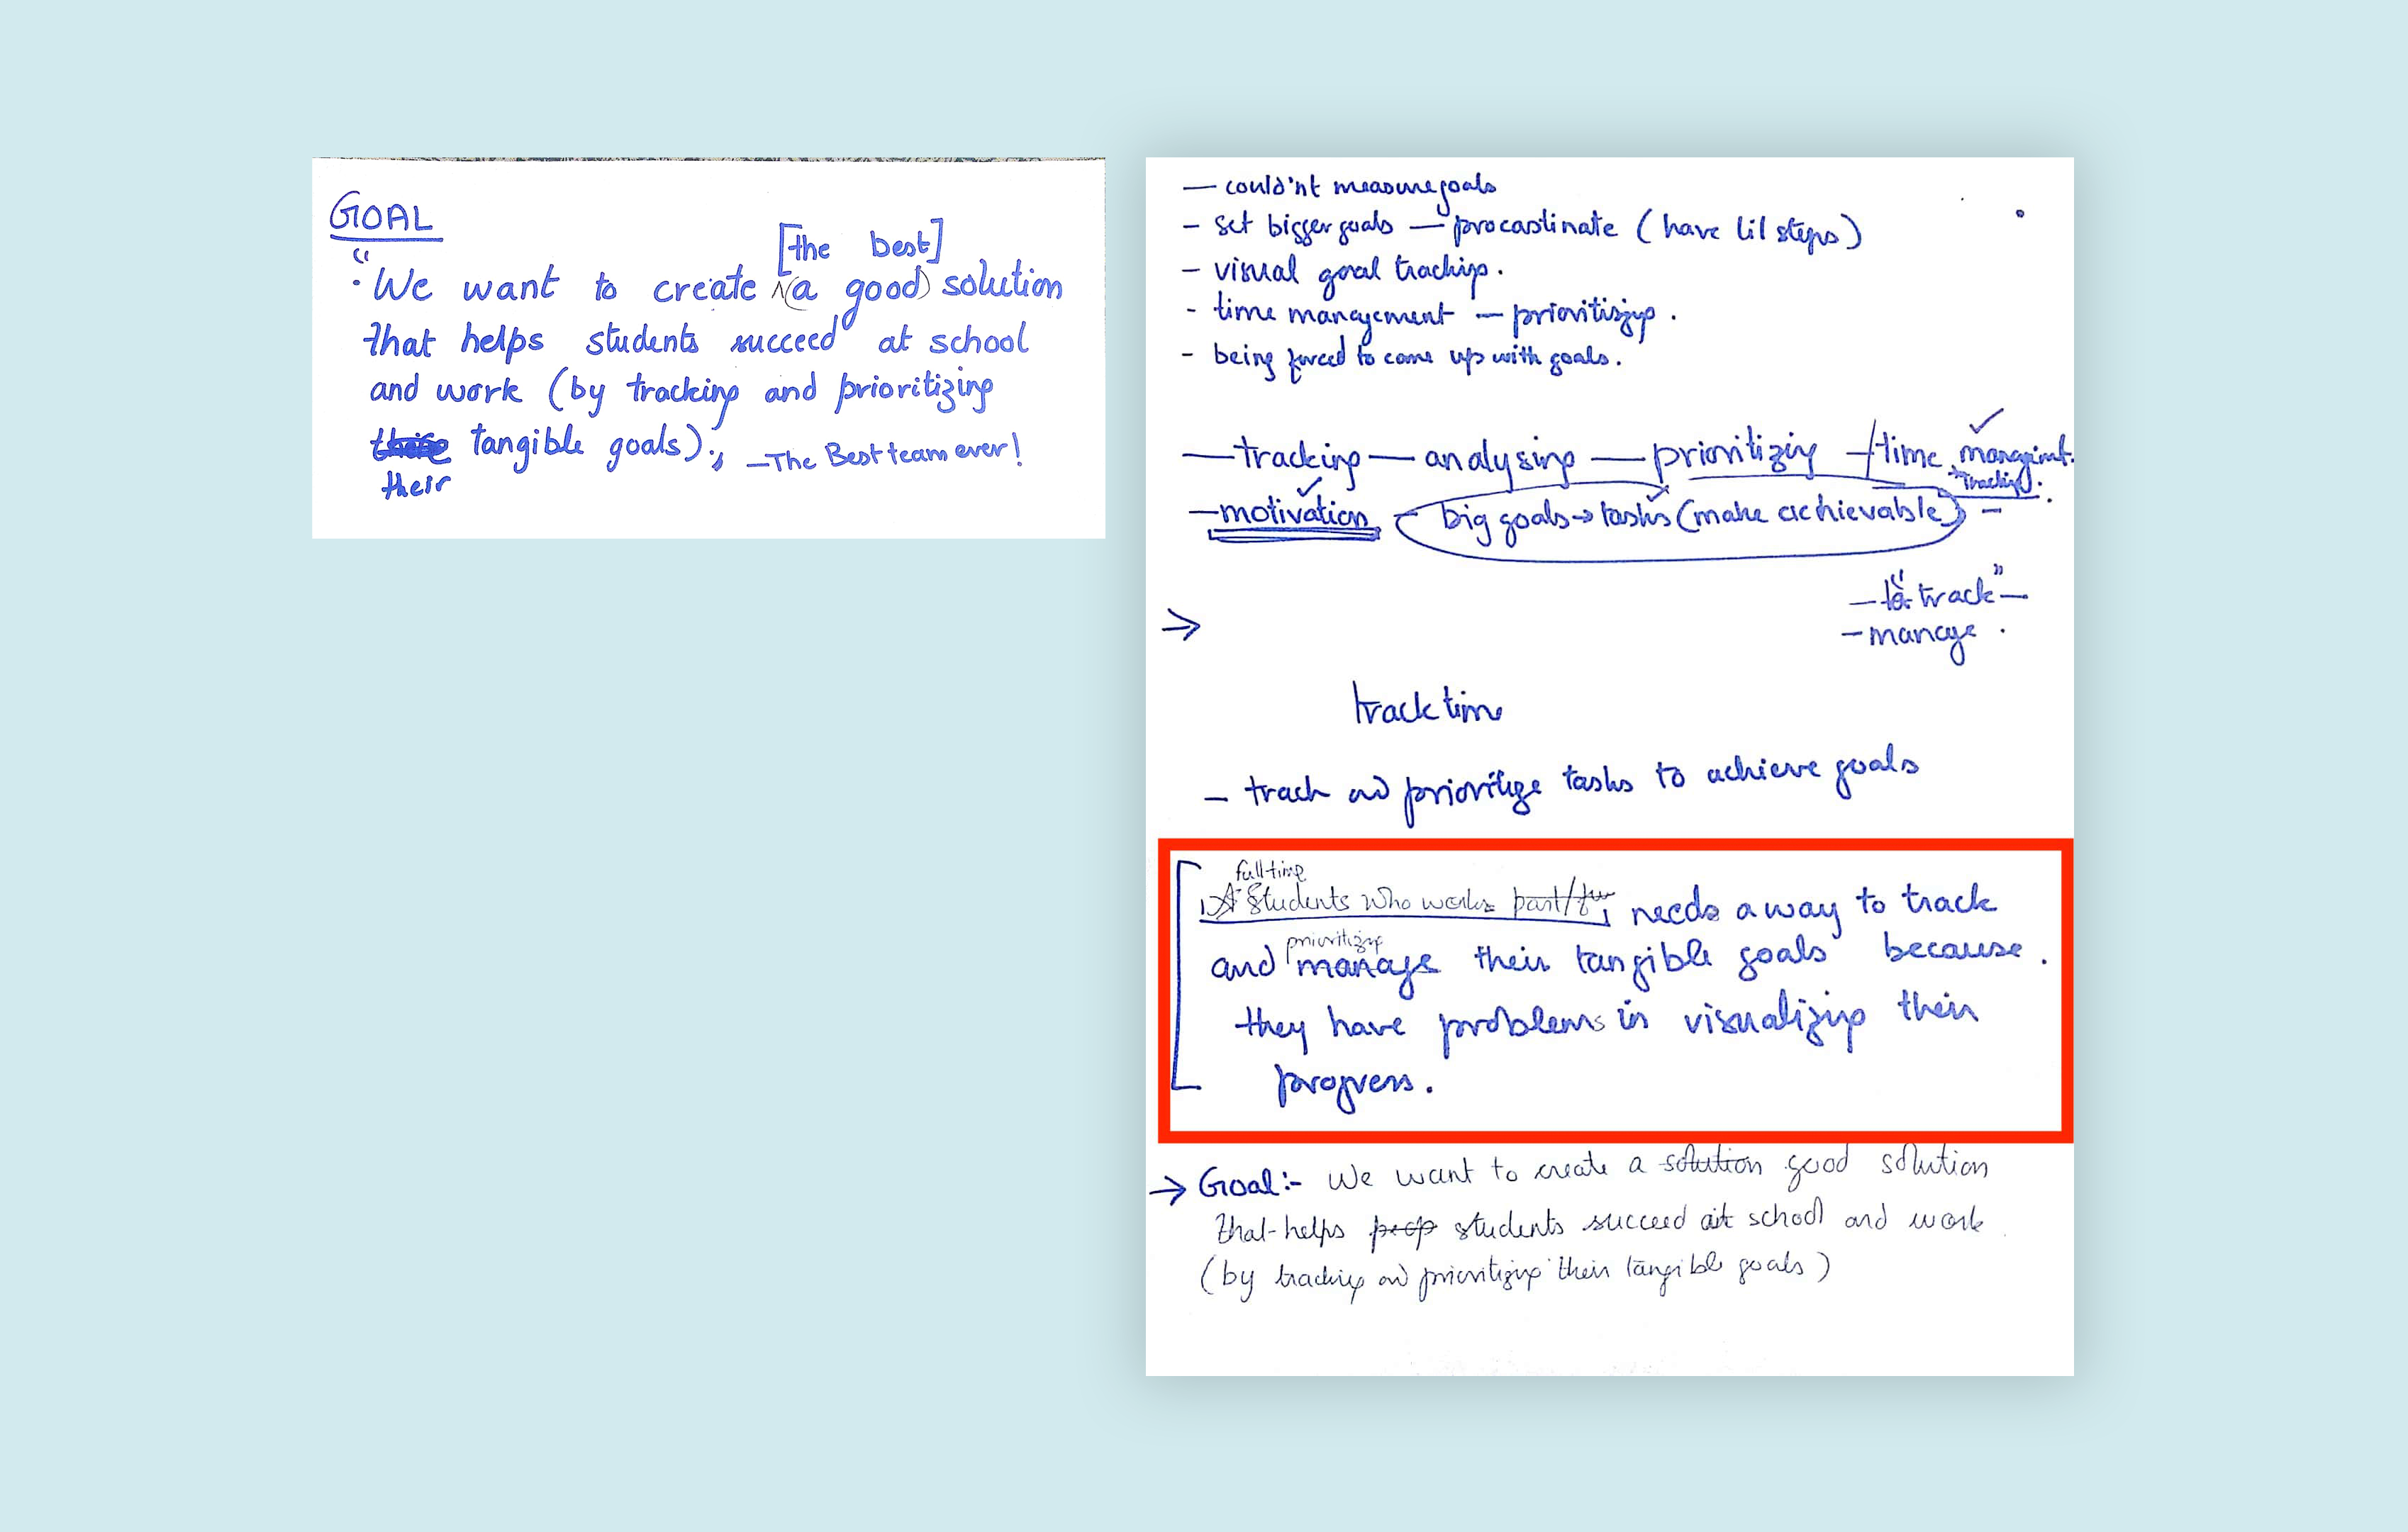 GOAL
[the best]
"We want to create ^(a good) solution
that helps students succeed at school
and work (by tracking and prioritizing
tangible goals).
their
—The Best team ever!
— could'nt measure goals
- set bigger goals — procastinate (have lil steps)
- visual goal tracking.
- time management — prioritizing.
- being forced to come up with goals.
— tracking — analysing — prioritizing — time managment.
tracking.
— motivation — big goals → tasks (make achievable) —
— to "track" —
— manage.
→
track time
- track and prioritize tasks to achieve goals
full-time
A Students who works part/ needs a way to track
prioritizing
and manage their tangible goals because
they have problems in visualizing their
progress.
→ Goal:- We want to create a solution good solution
that helps peop students succeed at school and work
(by tracking and prioritizing their tangible goals)